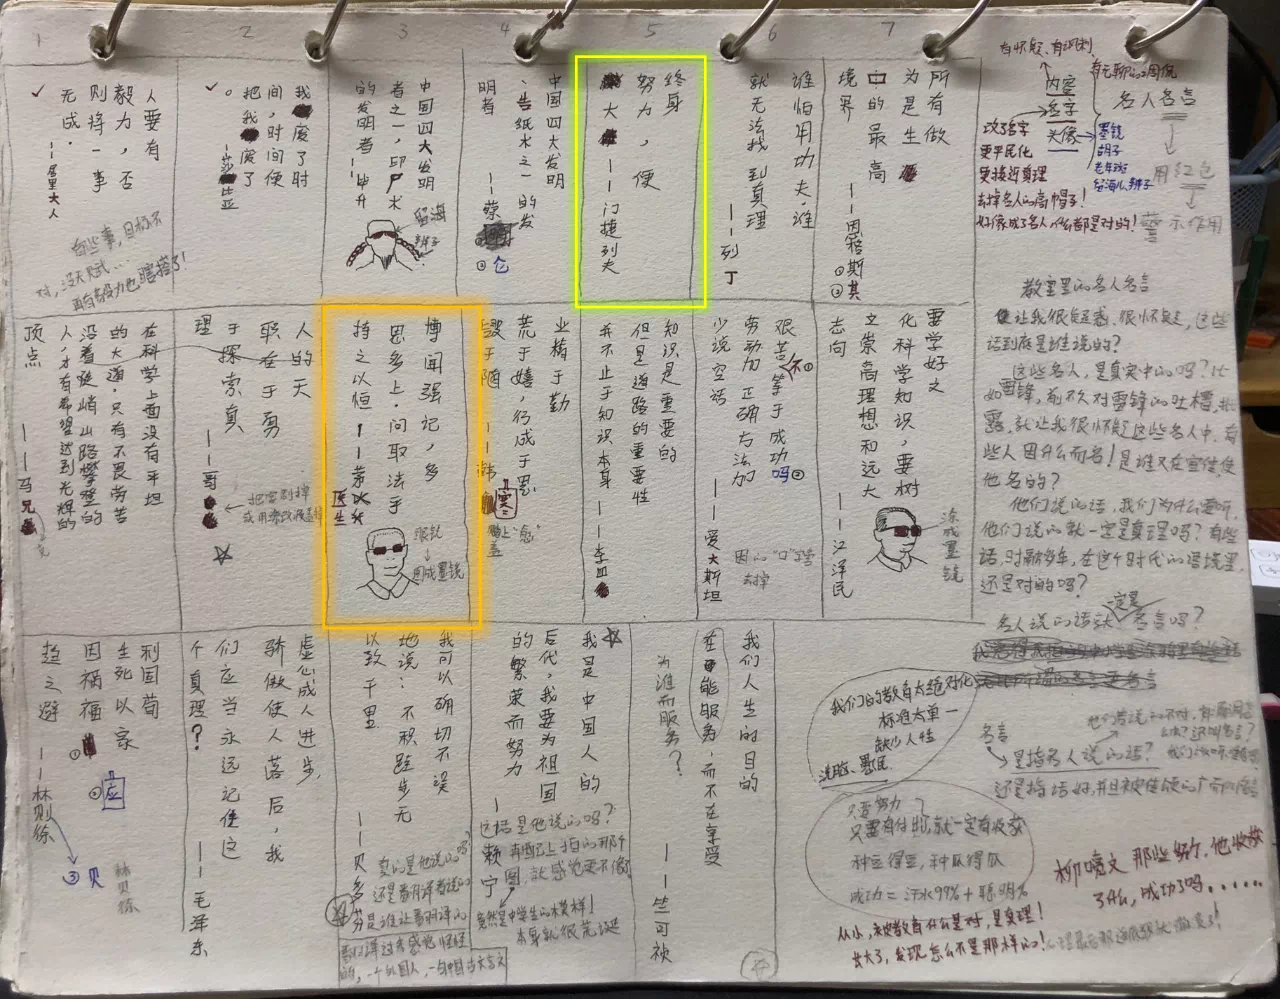 1
2
3
4
5
6
7
人要有
毅力，否
则将一事
无成．
——居里大人
有些事，目标不
对，没天赋…
再有毅力也瞎搭了！
我废了时
间，时间便
把我废了
。
中国四大发明
者之一，印尸术
的发明者
——毕升
留海
辫子
中国四大发明
、告纸术之一的发
明者
——蔡
②仑
终身
努力，便
大
——门捷列夫
谁怕用功夫，谁
就无法找到真理
——列丁
所有做
为是生
中的最高
境界
——因格斯
①
②其
有怀疑、有讽刺
有无聊的调侃
名人名言
内容
名字
头像
墨镜
胡子
老年斑
留海儿辫子
改了名字
更平民化
更接近真理
去掉名人的高帽子！
好像成了名人什么都是对的！
用红色
警示作用
在科学上面没有平坦
的大道，只有不畏劳苦
沿着陡峭山路攀登的
人，才有希望达到光辉的
顶点
——马兄
人的天
职在于勇
于探索真
理
——哥
把它刮掉
或用涂改液盖掉
博闻强记，多
思多上，问取法乎
持之以恒！——茅
医生
眼镜
画成墨镜
业精于勤
荒于嬉，行成于思
毁于随
——韩
寒
贴上“愈”
盖
知识是重要的
但是道路的重要性
并不止于知识本身
——李四
艰苦
不①
等于成功
吗②
劳动加正确方法加
少说空话
——爱大斯坦
因的“口”字
去掉
要学好文
化科学知识，要树
立崇高理想和远大
志向
——江泽民
涂成墨镜
教室里的名人名言
使让我很疑惑、很怀疑，这些
话到底是谁说的？
这些名人，是真实中的吗？比
如雷锋，前不久对雷锋的吐槽，揭
露，就让我很怀疑这些名人中，有
些人因什么而名！是谁又在宣传使
他名的？
他们说的话，我们为什么要听，
他们说的就一定是真理吗？有些
话，时隔多年，在这个时代的语境里，
还是对的吗？
一定是
名人说的话就名言吗？
利国苟
生死以家
因祸福
趋之避
①
②应
——林则徐
③贝
林贝徐
虚心成人进步，
骄傲使人落后，我
们应当永远记住这
个真理？
——毛泽东
我可以确切不误
地说：不积跬步无
以致千里
——贝多芬
真的是他说的吗？
还是翻译者说的
是谁让翻译的
翻译过来感觉怪怪
的，一个外国人，一句中国古文言文
我是中国人的
后代，我要为祖国
的繁荣而努力
——赖宁
这话是他说的吗？
再配上拍的那个
图，就感觉更不像
竟然是中学生的模样！
本身就很荒诞
我们人生的目的
在能服务，而不在享受
——竺可祯
为谁而服务？
我们的教育太绝对化
标准太单一
缺少人性
洗脑、愚民
只要努力
只要有付出，就一定有收获
种豆得豆，种瓜得瓜
成功＝汗水99%＋聪明%
从小，被教育什么是对，是真理！
长大了，发现怎么不是那样的！
名言
是指名人说的话？
还是指话好，并且被传颂的广而的名言
柳喷文 那些好个，他收获
了什么，成功了吗……